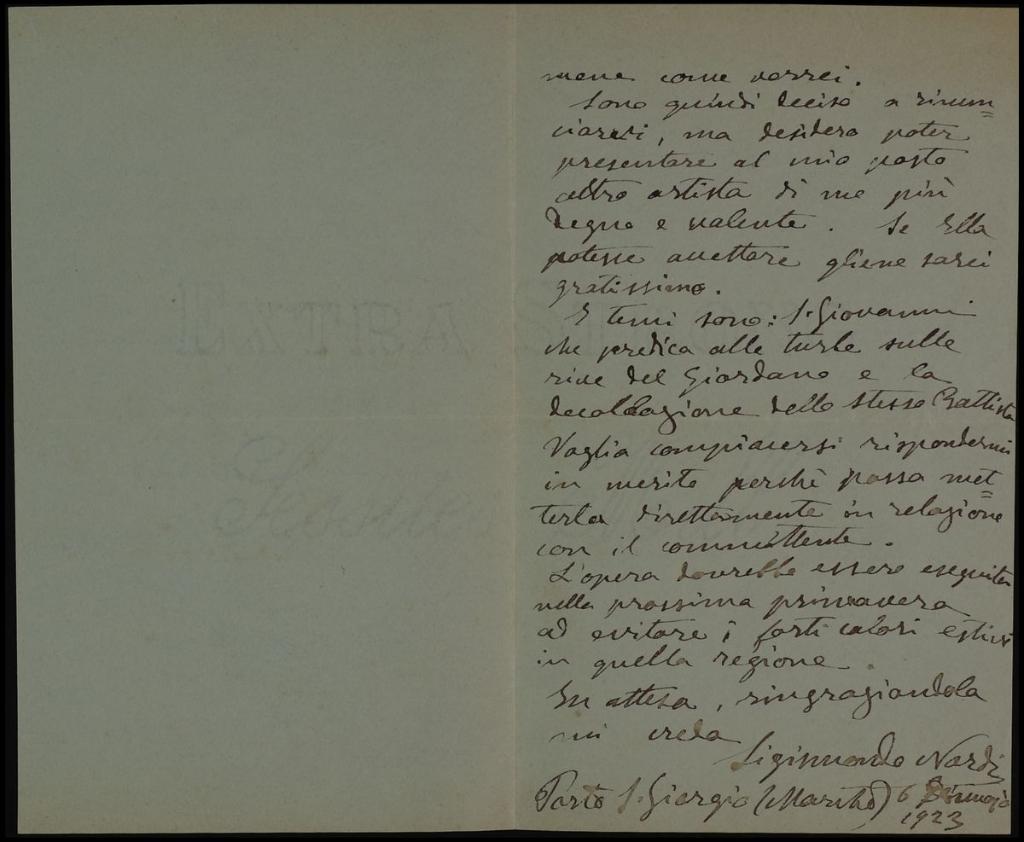 mene come vorrei.
Sono quindi deciso a rinun=
ciarvi, ma desidero poter
presentare al mio posto
altro artista di me più
degno e valente. Se Ella
potesse accettare gliene sarei
gratissimo.
I temi sono: S. Giovanni
che predica alle turbe sulle
rive del Giordano e la
decollazione dello stesso Battista
Voglia compiacersi rispondermi
in merito perchè possa met=
terla direttamente in relazione
con il committente.
L'opera dovrebbe essere eseguita
nella prossima primavera
ad evitare i forti calori estivi
in quella regione.
In attesa, ringraziandola
mi creda
Sigismondo Nardi
Porto S. Giorgio (Marche) 6
1923